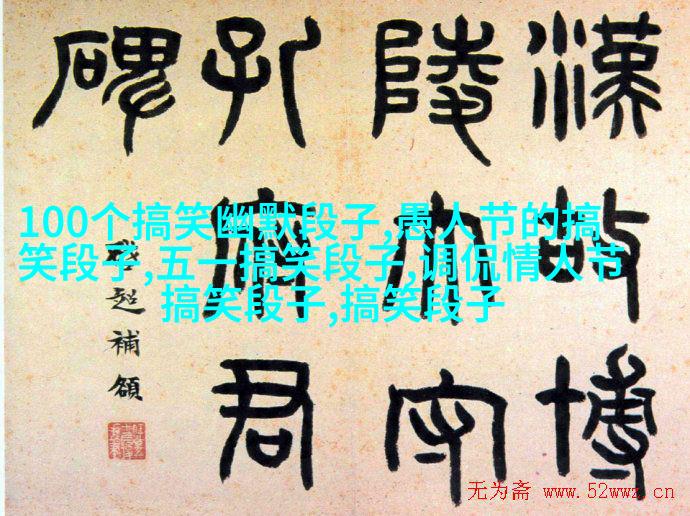 漢故博
陵太守
孔府君
碑
啟超補額
100个搞笑幽默段子,愚人节的搞
笑段子,五一搞笑段子,调侃情人节
搞笑段子,搞笑段子
无为斋 www.52wwz.cn